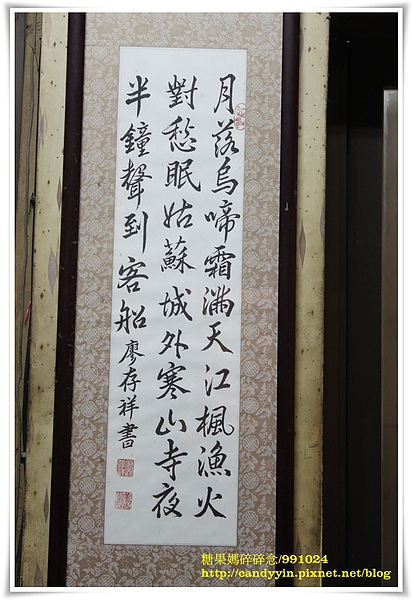 月落烏啼霜滿天江楓漁火
對愁眠姑蘇城外寒山寺夜
半鐘聲到客船
廖存祥書
糖果媽碎碎念/991024
http://candyyin.pixnet.net/blog